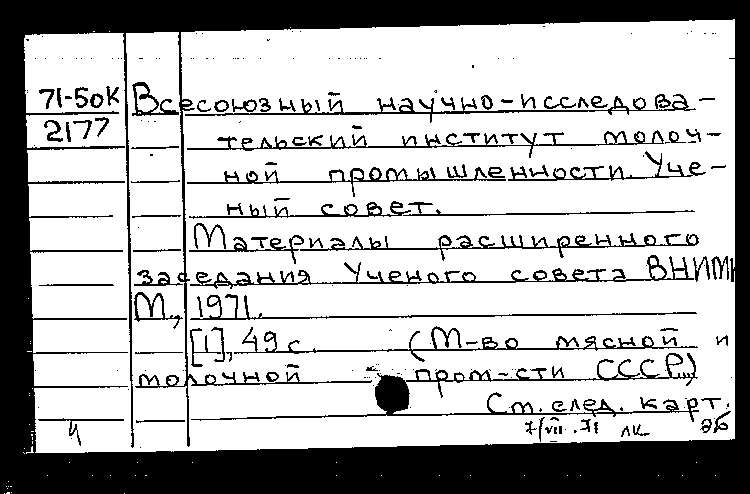 71-50К Всесоюзный научно-исследова-
2177 тельский институт молоч-
ной промышленности. Уче-
ный совет.
Материалы расширенного
заседания Ученого совета ВНИМИ
М., 1971.
[1], 49 с. (М-во мясной и
молочной пром-сти СССР.,)
См. след. карт.
ч 7/VII.71 лк